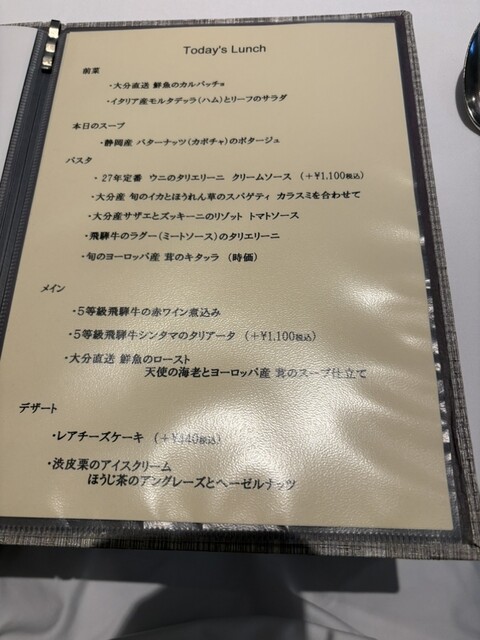 Today's Lunch
前菜
・大分直送 鮮魚のカルパッチョ
・イタリア産モルタデッラ(ハム)とリーフのサラダ
本日のスープ
・静岡産 バターナッツ(カボチャ)のポタージュ
パスタ
・27年定番 ウニのタリエリーニ クリームソース (+¥1,100税込)
・大分産 旬のイカとほうれん草のスパゲティ カラスミを合わせて
・大分産サザエとズッキーニのリゾット トマトソース
・飛騨牛のラグー(ミートソース)のタリエリーニ
・旬のヨーロッパ産 茸のキタッラ (時価)
メイン
・5等級飛騨牛の赤ワイン煮込み
・5等級飛騨牛シンタマのタリアータ (+¥1,100税込)
・大分直送 鮮魚のロースト
天使の海老とヨーロッパ産 茸のスープ仕立て
デザート
・レアチーズケーキ (+¥440税込)
・渋皮栗のアイスクリーム
ほうじ茶のアングレーズとヘーゼルナッツ